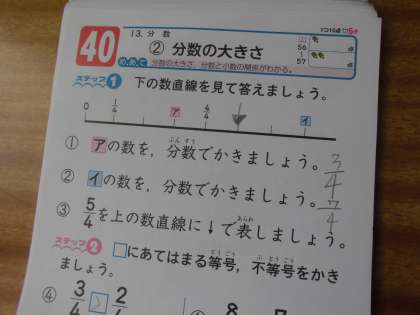 13. 分数
40
② 分数の大きさ
56
57
めあて 分数の大きさ、分数と小数の関係がわかる。
ステップ1 下の数直線を見て答えましょう。
0 1/4 ア 4/4 イ
① アの数を，分数でかきましょう。 3/4
ぶんすう
② イの数を，分数でかきましょう。 7/4
③ 5/4を上の数直線に↓で表しましょう。
あらわ
ステップ2 □にあてはまる等号，不等号をかき
とうごう ふとうごう
ましょう。
④ 3/4 > 2/4
8 7